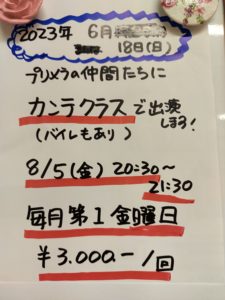 2023年 6月
18日(日)
プリメラの仲間たちに
カンテクラスで出演
します!
(バイレもあり)
8/5(金) 20:30〜
21:30
毎月第1金曜日
¥3.000-/回